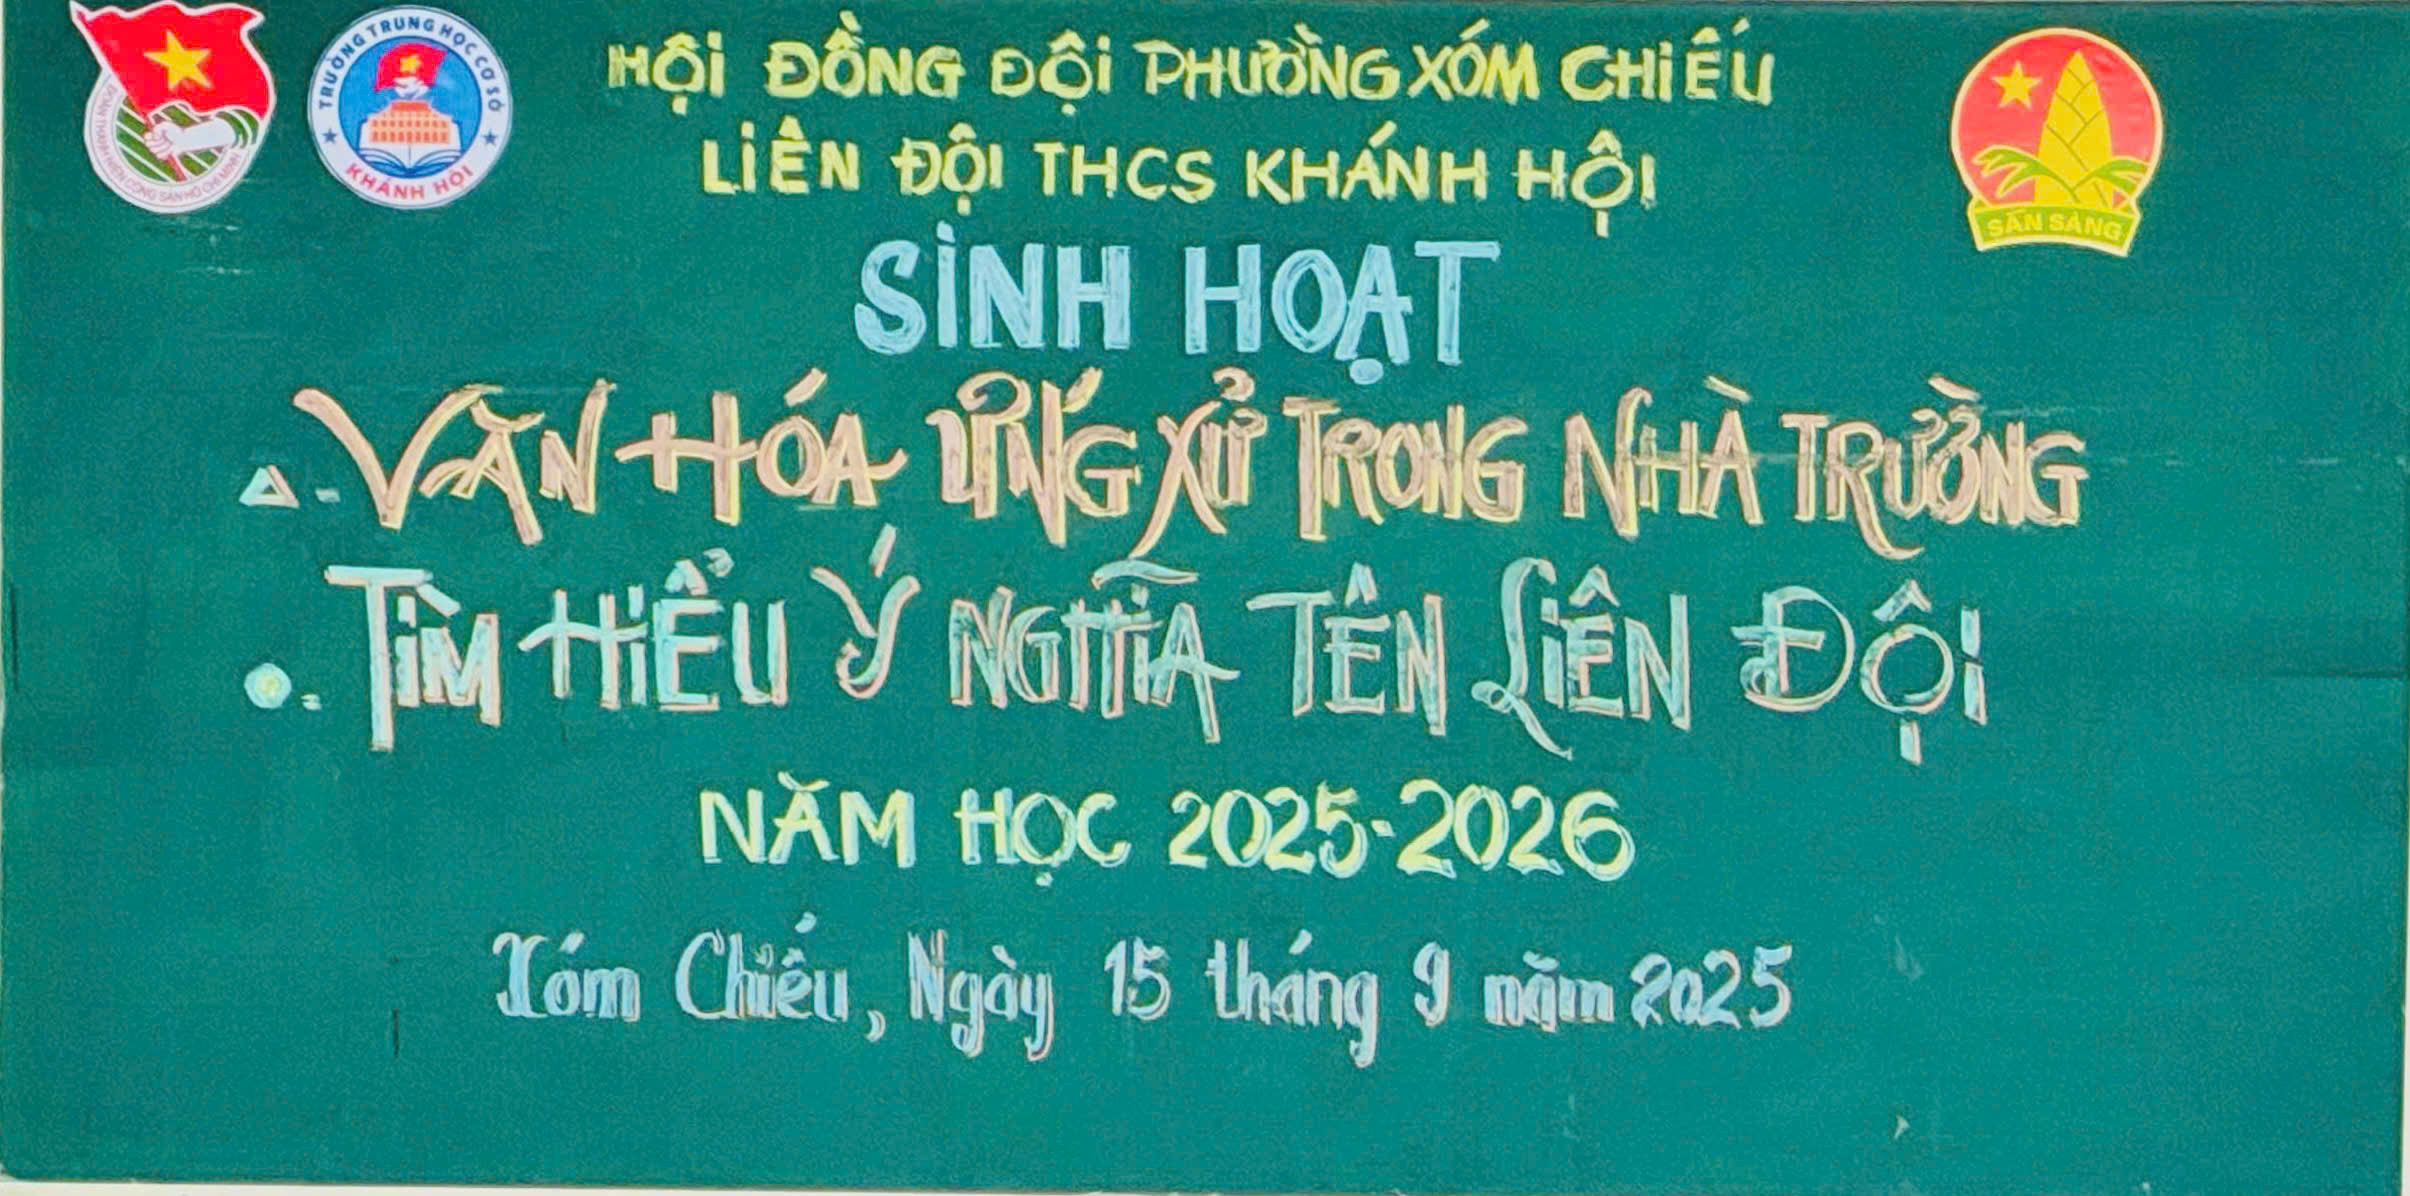 HỘI ĐỒNG ĐỘI PHƯỜNG XÓM CHIẾU
LIÊN ĐỘI THCS KHÁNH HỘI
SINH HOẠT
VĂN HÓA ỨNG XỬ TRONG NHÀ TRƯỜNG
TÌM HIỂU Ý NGHĨA TÊN LIÊN ĐỘI
NĂM HỌC 2025-2026
Xóm Chiếu, Ngày 15 tháng 9 năm 2025
ĐOÀN THANH NIÊN CỘNG SẢN HỒ CHÍ MINH
TRƯỜNG TRUNG HỌC CƠ SỞ
KHÁNH HỘI
SẴN SÀNG